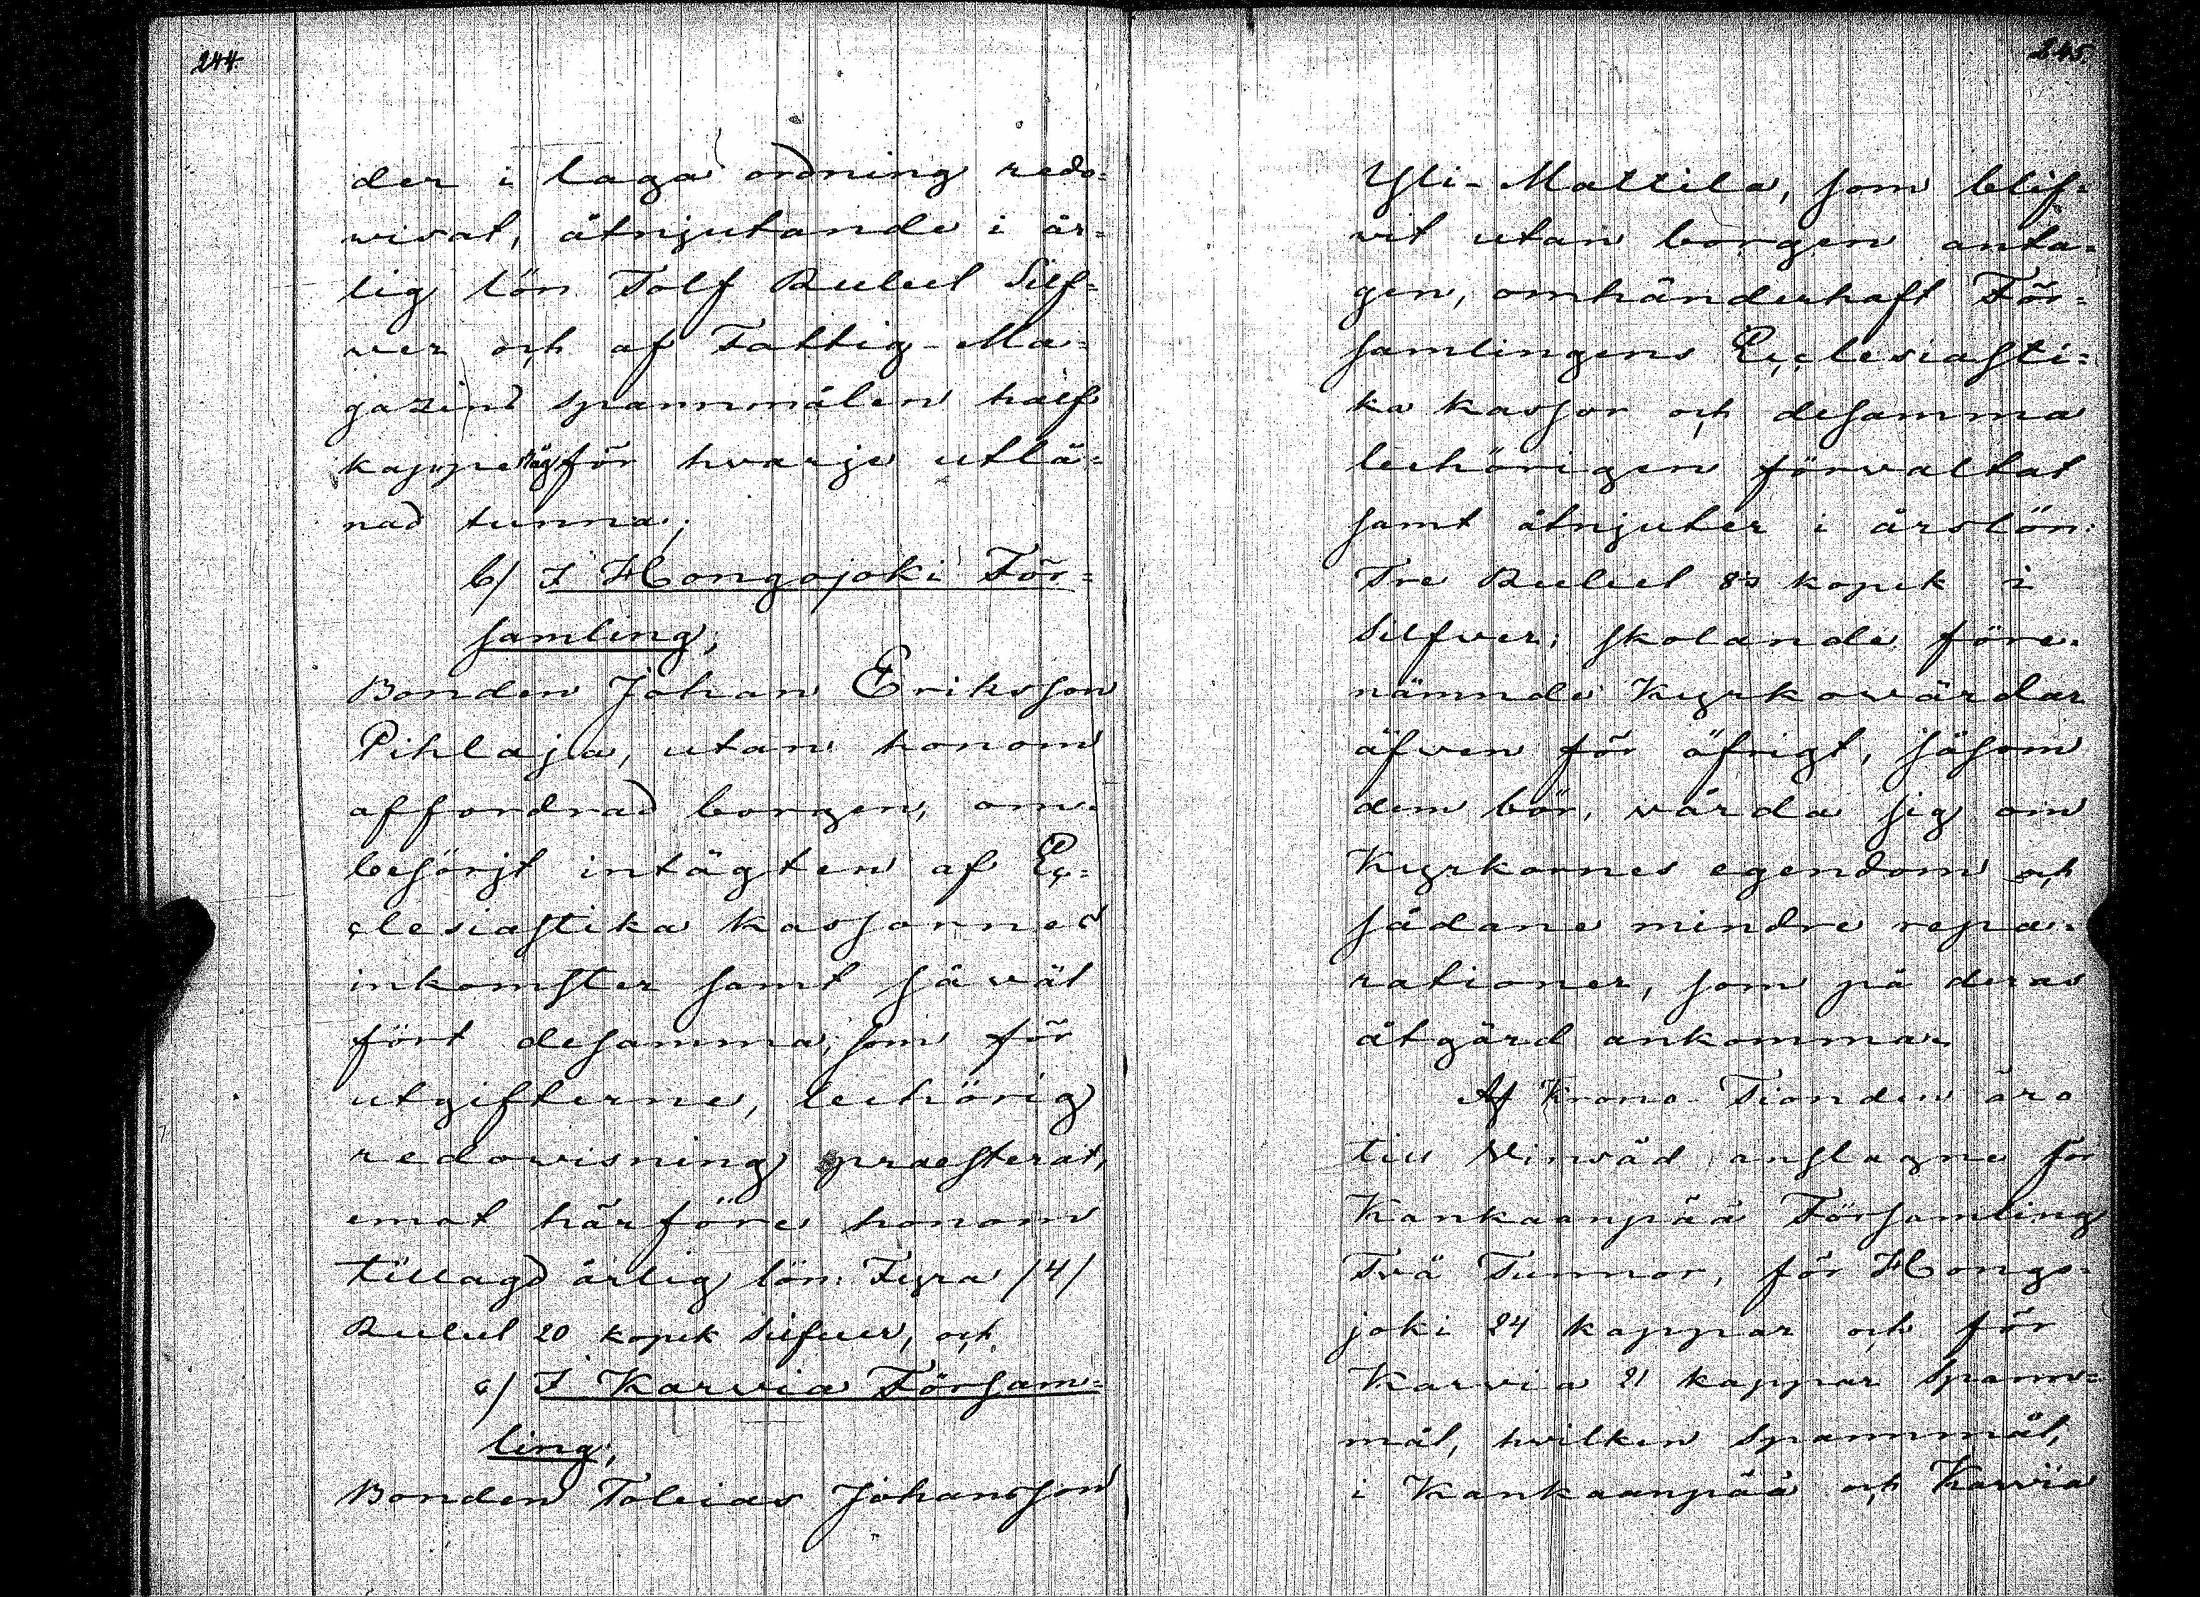 244
der i laga ordning redo=
visat, åtnjutande i år=
lig lön Tolf Rubel Silf=
ver och af Fattig-Ma=
gazins spannmålen half
kappe råg för hvarje utlå=
nad tunna;
b/ I Hongojoki För=
samling;
Bonden Johan Eriksson
Pihlaja, utan honom
affordrad borgen, om=
besörjt intägten af Ec=
clesiastika kassornes
inkomster samt så väl
fört desamma, som för
utgifterne, behörig
redovisning praesterat,
emot härföre honom
tillagd årlig lön: Fyra /4/
Rubel 20 kopek Silfver, och
c/ I Karvia Försam=
ling;
Bonden Tobias Johansson
245.
Yli-Mattila, som blif=
vit utan borgen anta=
gen, omhänderhaft För=
samlingens Ecclesiasti=
ka kassor och desamma
behörigen förvaltat
samt åtnjuter i årslön:
Tre Rubel 80 kopek i
Silfver; skolande före=
nämnde Kyrkovärdar
äfven för öfrigt, såsom
dem bör, vårda sig om
Kyrkornes egendom och
sådane mindre repa=
rationer, som på deras
åtgärd ankomma.
Af Krono-Tionden äro
till Vinsäd anslagne för
Kankaanpää Församling
Två Tunnor, för Hongo=
joki 24 kappar och för
Karvia 21 kappar Spann=
mål, hvilken Spannmål,
i Kankaanpää och Karvia